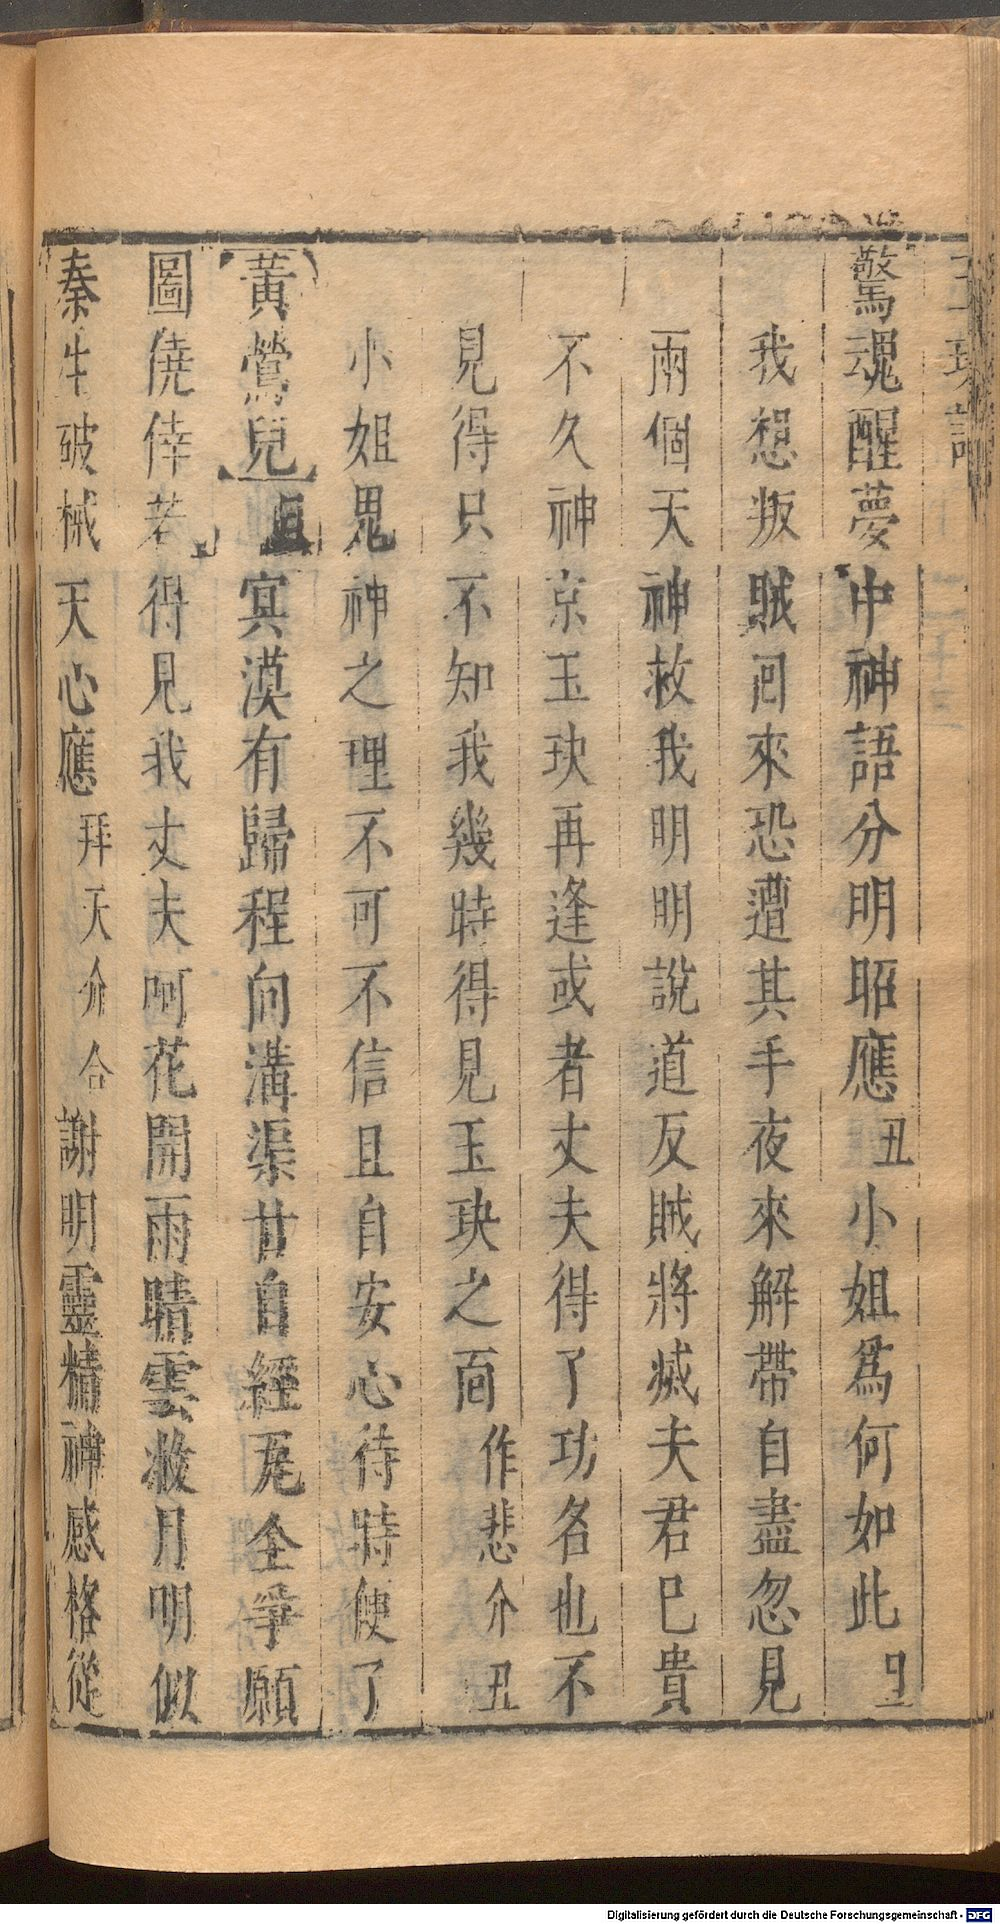 驚魂醒夢中神語分明昭應丑小姐爲何如此旦
我想叛賊回來恐遭其手夜來解帶自盡忽見
兩個天神救我明明說道反賊將滅夫君已貴
不久神京玉玦再逢或者丈夫得了功名也不
見得只不知我幾時得見玉玦之面作悲介丑
小姐鬼神之理不可不信且自安心待時便了
【黃鶯兒】旦冥漠有歸程向溝渠甘自經瓦全爭願
圖僥倖若得見我丈夫呵花開雨晴雲救月明似
秦生破械天心應拜天介合謝明靈精神感格從
二十三
Digitalisierung gefördert durch die Deutsche Forschungsgemeinschaft - DFG